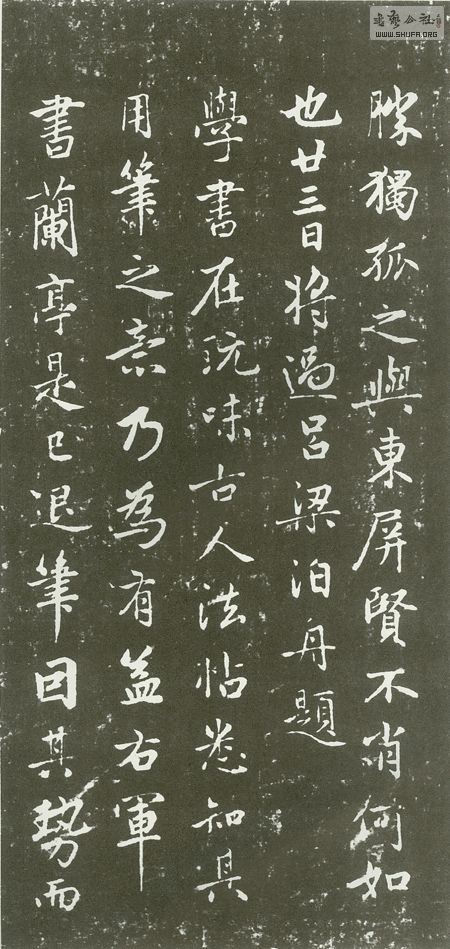 勝獨孤之與東屏賢不肖何如
也廿三日將過呂梁泊舟題
學書在玩味古人法帖悉知其
用筆之意乃為有益右軍
書蘭亭是已退筆因其勢而
書藝公社
WWW.SHUFA.ORG